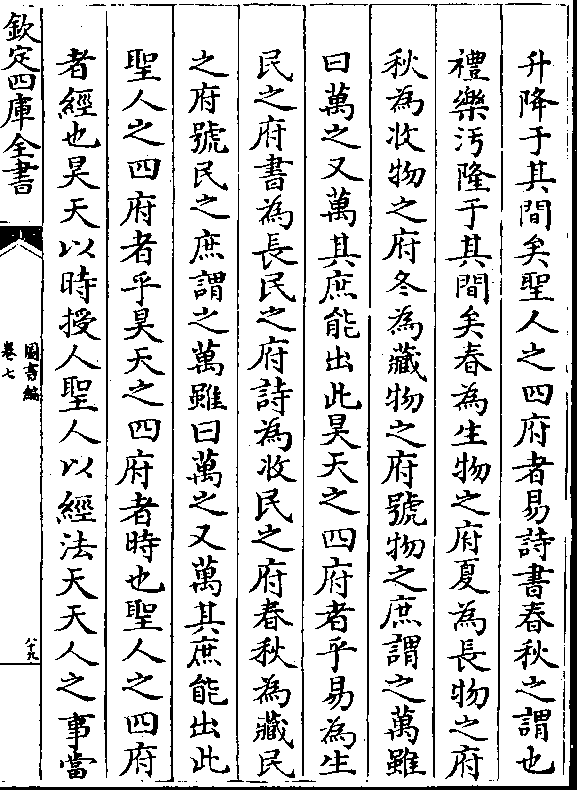 升降于其間矣聖人之四府者易詩書春秋之謂也
禮樂汚隆于其間矣春為生物之府夏為長物之府
秋為收物之府冬為藏物之府號物之庶謂之萬雖
曰萬之又萬其庶能出此昊天之四府者乎易為生
民之府書為長民之府詩為收民之府春秋為藏民
之府號民之庶謂之萬雖曰萬之又萬其庶能出此
聖人之四府者乎昊天之四府者時也聖人之四府
者經也昊天以時授人聖人以經法天天人之事當
欽定四庫全書
圖書編
卷七
八十九